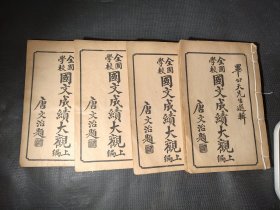 全國學校
國文成績大觀 上編
唐文治題
全國學校
國文成績大觀 上編
唐文治題
全國學校
國文成績大觀 上編
唐文治題
畢公天先生選輯
全國學校
國文成績大觀 上編
唐文治題